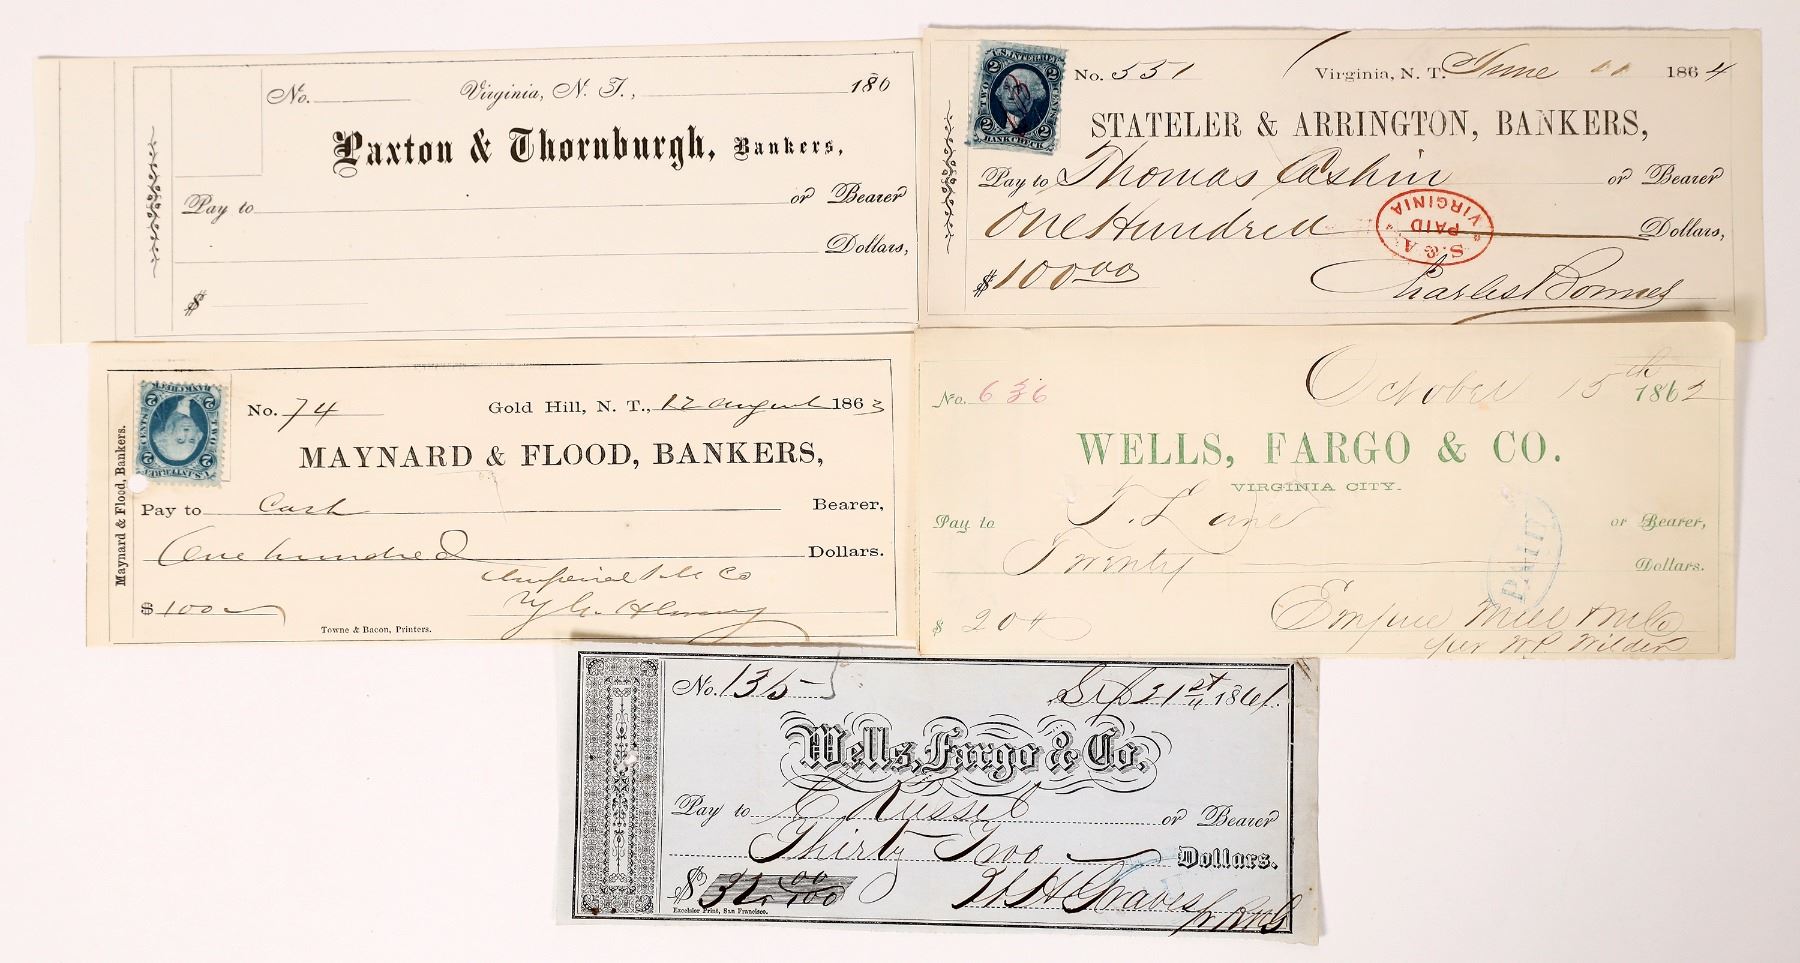 No. Virginia, N. T., 186
Paxton & Thornburgh, Bankers,
Pay to or Bearer
Dollars,
$
U.S. INTER. REV.
2 2
TWO CENTS
BANK CHECK
No. 551 Virginia, N. T. June 1864
STATELER & ARRINGTON, BANKERS,
Pay to Thomas Cashin or Bearer
One Hundred Dollars,
S. & A.
PAID
VIRGINIA
$ 100 00
Charles Bonner
Maynard & Flood, Bankers.
No. 74 Gold Hill, N. T., 12 August 1863
MAYNARD & FLOOD, BANKERS,
Pay to Cash Bearer,
One hundred Dollars.
Imperial S M Co
$ 100
Towne & Bacon, Printers.
October 15th 1862
No. 636
WELLS, FARGO & CO.
VIRGINIA CITY.
Pay to T. Lane or Bearer,
Twenty Dollars.
PAID
$ 20
Empire Mill & M Co
per W P Wilder
No. 135 Sep 21st 1861.
Wells, Fargo & Co.
Pay to C Russel or Bearer
Thirty Two Dollars.
$ 32. 00/100 W H Graves
Excelsior Print, San Francisco.